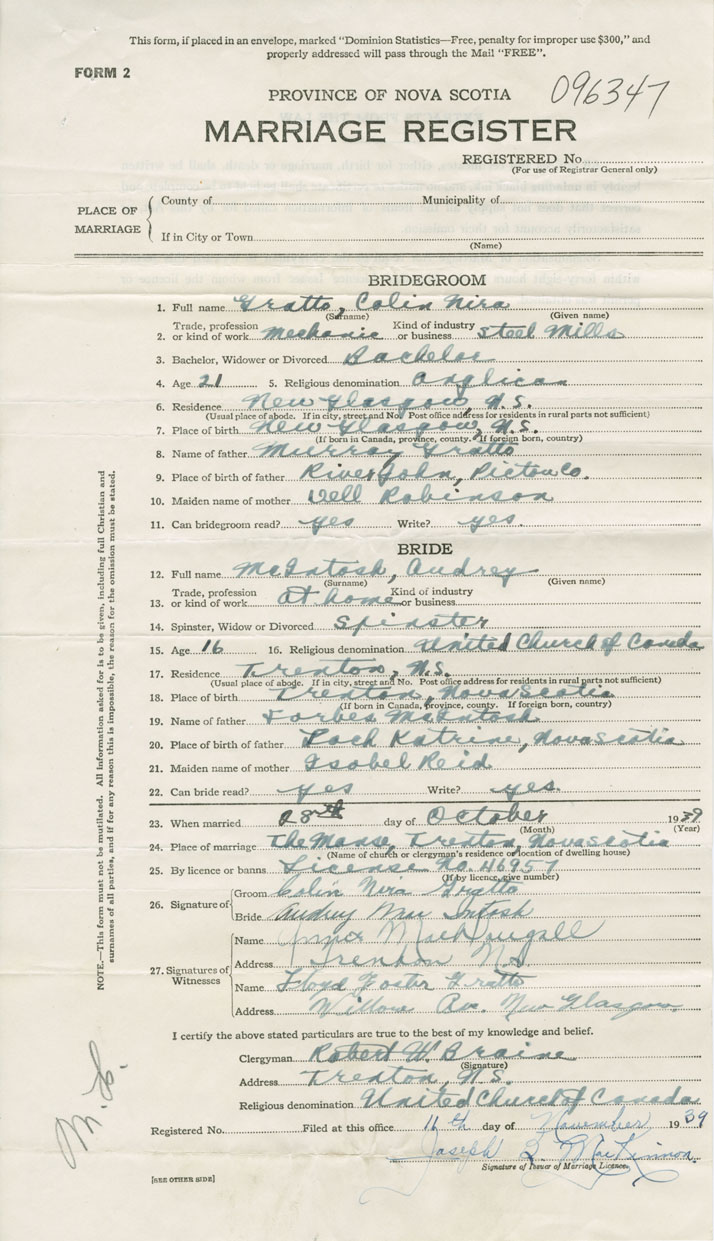 This form, if placed in an envelope, marked "Dominion Statistics—Free, penalty for improper use $300," and
properly addressed will pass through the Mail "FREE".
FORM 2
096347
PROVINCE OF NOVA SCOTIA
MARRIAGE REGISTER
REGISTERED No.
(For use of Registrar General only)
PLACE OF MARRIAGE
County of Municipality of
If in City or Town
(Name)
BRIDEGROOM
1. Full name Gratto, Colin Nira
(Surname) (Given name)
2. Trade, profession or kind of work Mechanic Kind of industry or business Steel Mills
3. Bachelor, Widower or Divorced Bachelor
4. Age 21 5. Religious denomination Anglican
6. Residence New Glasgow, N.S.
(Usual place of abode. If in city, street and No. Post office address for residents in rural parts not sufficient)
7. Place of birth New Glasgow, N.S.
(If born in Canada, province, county. If foreign born, country)
8. Name of father Murray Gratto
9. Place of birth of father River John, Pictou Co.
10. Maiden name of mother Robinson
11. Can bridegroom read? yes Write? yes.
BRIDE
12. Full name McIntosh, Audrey
(Surname) (Given name)
13. Trade, profession or kind of work At home Kind of industry or business
14. Spinster, Widow or Divorced Spinster
15. Age 16 16. Religious denomination United Church of Canada
17. Residence Trenton, N.S.
(Usual place of abode. If in city, street and No. Post office address for residents in rural parts not sufficient)
18. Place of birth Trenton, Nova Scotia
(If born in Canada, province, county. If foreign born, country)
19. Name of father Forbes McIntosh
20. Place of birth of father Loch Katrine, Nova Scotia
21. Maiden name of mother Isobel Reid
22. Can bride read? yes Write? yes.
23. When married 28th day of October 1939
(Month) (Year)
24. Place of marriage The Manse, Trenton, Nova Scotia
(Name of church or clergyman's residence or location of dwelling house)
25. By licence or banns License No. 46957
(If by licence, give number)
26. Signature of
Groom Colin Nira Gratto
Bride Audrey Mac Intosh
27. Signatures of Witnesses
Name MacDougall
Address Trenton N.S.
Name Floyd Foster Gratto
Address Willow Ave. New Glasgow.
I certify the above stated particulars are true to the best of my knowledge and belief.
Clergyman Robert W. Braine
(Signature)
Address Trenton, N.S.
Religious denomination United Church of Canada
Registered No. Filed at this office 16th day of November 1939
Joseph MacKinnon
Signature of Issuer of Marriage Licence.
[SEE OTHER SIDE]
NOTE.—This form must not be mutilated. All Information asked for is to be given, including full Christian and
surnames of all parties, and if for any reason this is impossible, the reason for the omission must be stated.